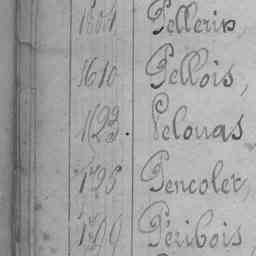 1604 Pellerin,
1610 Pellois,
1623. Pelouas
1795 Pencolet,
1799 Péribois,